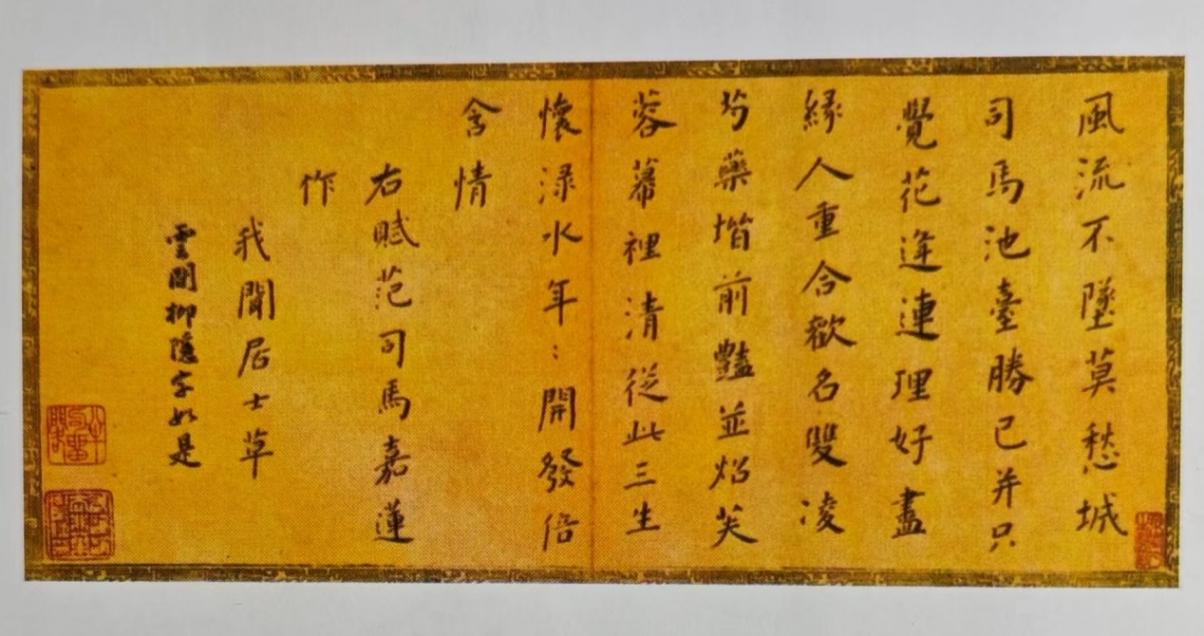 風流不墜莫愁城
司馬池臺勝已并只
覺花逢連理好盡
緣人重合歡名雙凌
芍藥堦前豔並炤芙
蓉幕裡清從此三生
懷淥水年〻開發倍
含情
右賦范司馬嘉蓮
作
我聞居士草
雲間柳隱字如是